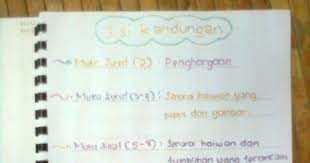 Isi kandungan
Muka Surat (2) : Penghargaan
Muka Surat (3-4) : Senarai haiwan yang
pupus dan gambar.
Muka Surat (5-8) : Senarai haiwan dan
tumbuhan yang terancam